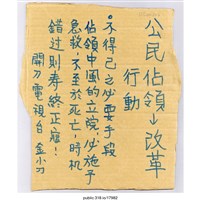 公民佔領→改革
行動
不得已之必要手段
佔領中風的立院，必施予
急救，不至於死亡，時机
錯过則寿終正寢！
開刀電視台 金小刀
public 318 io/17982